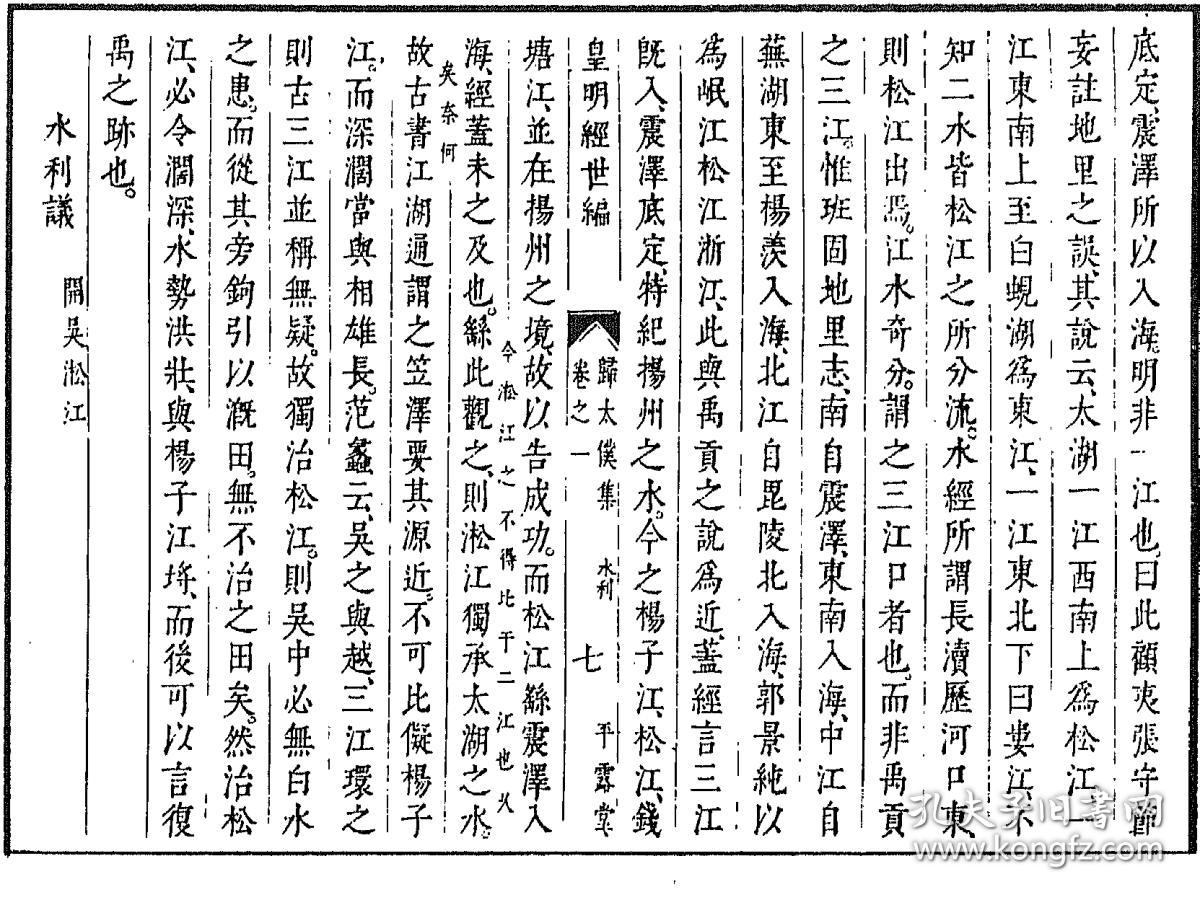 底定、震澤所以入海、明非一江也、曰此顧夷張守節
妄註地里之誤、其說云、太湖一江西南上爲松江、一
江東南上至白蜆湖爲東江、一江東北下曰婁江、不
知二水皆松江之所分流。水經所謂長瀆歷河口東、
則松江出焉。江水奇分。謂之三江口者也。而非禹貢
之三江。惟班固地里志、南自震澤、東南入海、中江自
蕪湖東至楊羨入海、北江自毘陵北入海、郭景純以
爲岷江松江浙江、此與禹貢之說爲近、蓋經言三江
旣入、震澤底定、特紀揚州之水。今之楊子江、松江、錢
皇明經世編
歸太僕集 水利
卷之一
七
平露堂
塘江、並在揚州之境、故以告成功。而松江繇震澤入
海、經蓋未之及也。繇此觀之、則淞江獨承太湖之水。
今淞江之不得比于二江也久
矣奈何
故古書江湖通謂之笠澤要其源近。不可比儗楊子
江。而深濶當與相雄長。范蠡云、吳之與越、三江環之
則古三江並稱無疑。故獨治松江。則吳中必無白水
之患。而從其旁鉤引以溉田。無不治之田矣。然治松
江、必令濶深、水勢洪壯、與楊子江埒、而後可以言復
禹之跡也。
水利議 開吳淞江
孔夫子旧书网
www.kongfz.com